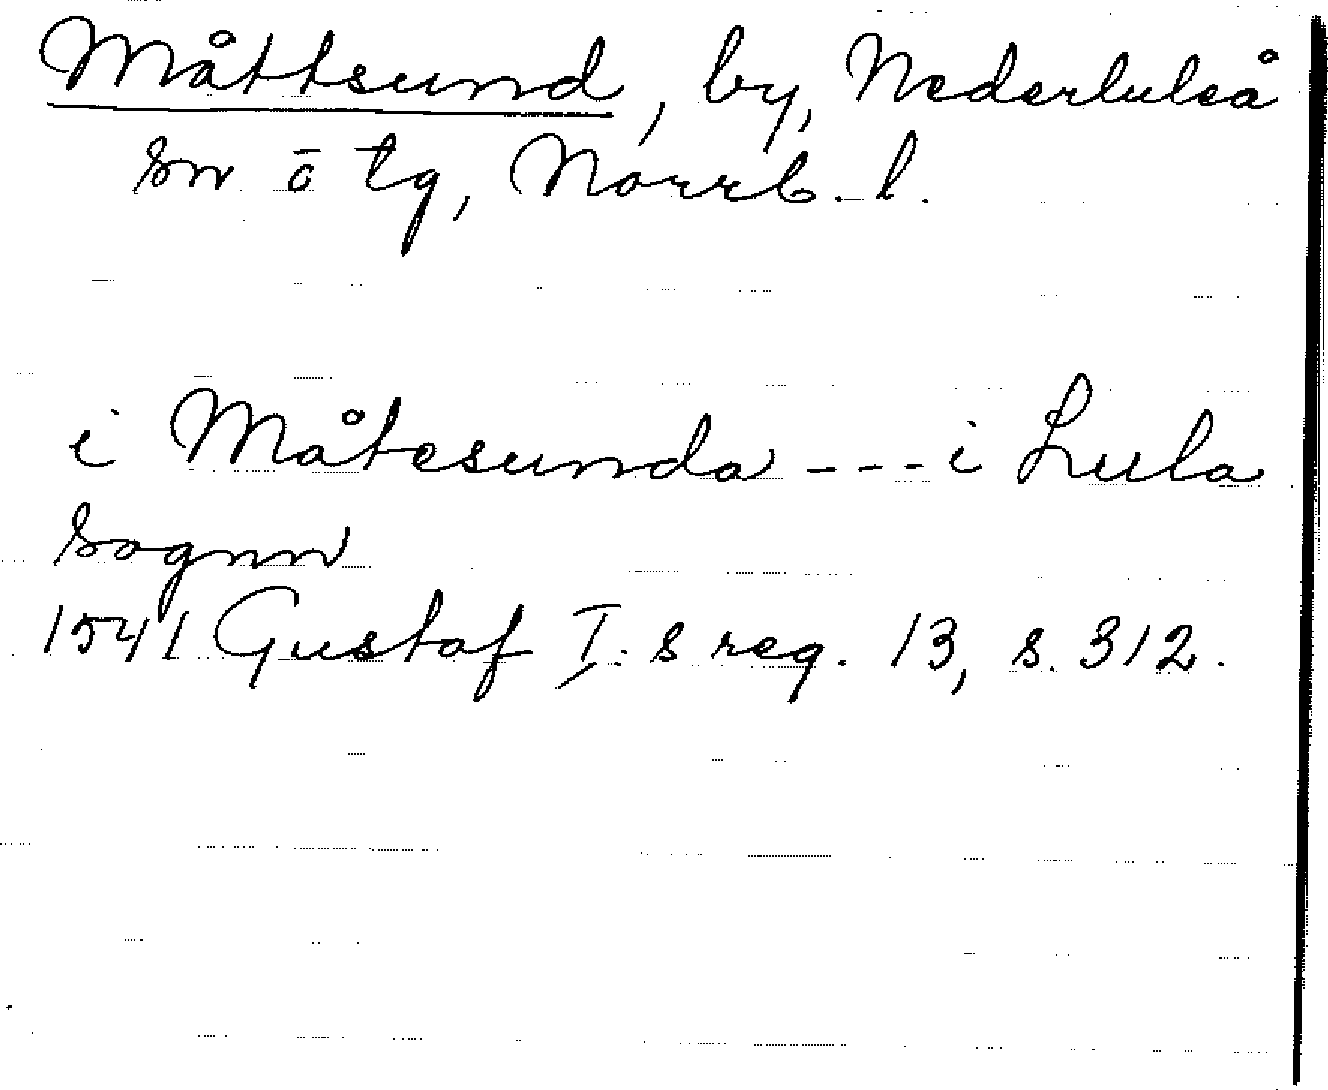 Måttsund, by, Nederluleå
sn o tg, Norrb. l.
i Måtesunda - - - i Lula
sognn
1541 Gustaf I:s reg. 13, s. 312.